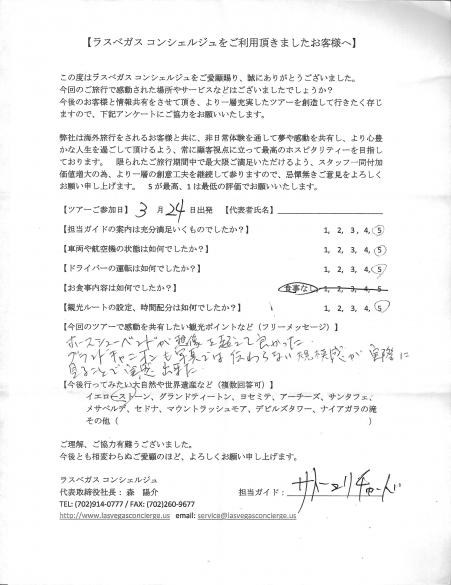 【ラスベガス コンシェルジュをご利用頂きましたお客様へ】
この度はラスベガス コンシェルジュをご愛顧賜り、誠にありがとうございました。
今回のご旅行で感動された場所やサービスなどはございましたでしょうか？
今後のお客様と情報共有をさせて頂き、より一層充実したツアーを創造して行きたく存じ
ますので、下記アンケートにご協力をお願いいたします。
弊社は海外旅行をされるお客様と共に、非日常体験を通して夢や感動を共有し、より心豊
かな人生を過ごして頂けるよう、常に顧客視点に立って最高のホスピタリティーを目指し
ております。 限られたご旅行期間中で最大限ご満足いただけるよう、スタッフ一同付加
価値増大の為、より一層の創意工夫を継続して参りますので、忌憚無きご意見をよろしく
お願い申し上げます。 5が最高、1は最低の評価でお願いいたします。
【ツアーご参加日】 3 月 24 日出発 【代表者氏名】
【担当ガイドの案内は充分満足いくものでしたか？】 1, 2, 3, 4, 5
【車両や航空機の状態は如何でしたか？】 1, 2, 3, 4, 5
【ドライバーの運転は如何でしたか？】 1, 2, 3, 4, 5
【お食事内容は如何でしたか？】 食事なし 1, 2, 3, 4, 5
【観光ルートの設定、時間配分は如何でしたか？】 1, 2, 3, 4, 5
【今回のツアーで感動を共有したい観光ポイントなど（フリーメッセージ）】
ホースシューベンドが想像を超えて良かった
グランドキャニオンも写真では伝わらない規模感が実際に
見ることで実感出来た
【今後行ってみたい大自然や世界遺産など（複数回答可）】
イエローストーン、グランドティートン、ヨセミテ、アーチーズ、サンタフェ、
メサベルデ、セドナ、マウントラッシュモア、デビルズタワー、ナイアガラの滝
その他（ ）
ご理解、ご協力有難うございました。
今後とも相変わらぬご愛顧のほど、よろしくお願い申し上げます。
ラスベガス コンシェルジュ
代表取締役社長： 森 陽介 担当ガイド：
TEL: (702)914-0777 / FAX: (702)260-9677
http://www.lasvegasconcierge.us email: service@lasvegasconcierge.us